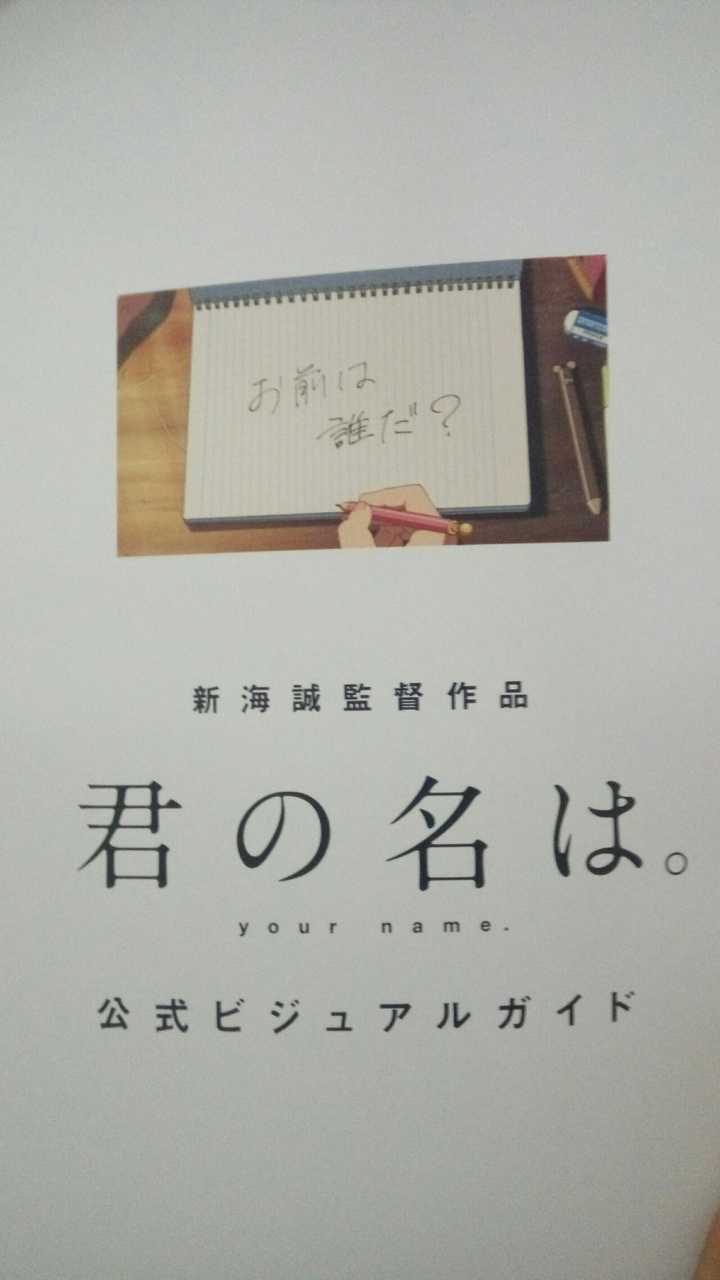 お前は
誰だ?
新海誠監督作品
君の名は。
your name.
公式ビジュアルガイド